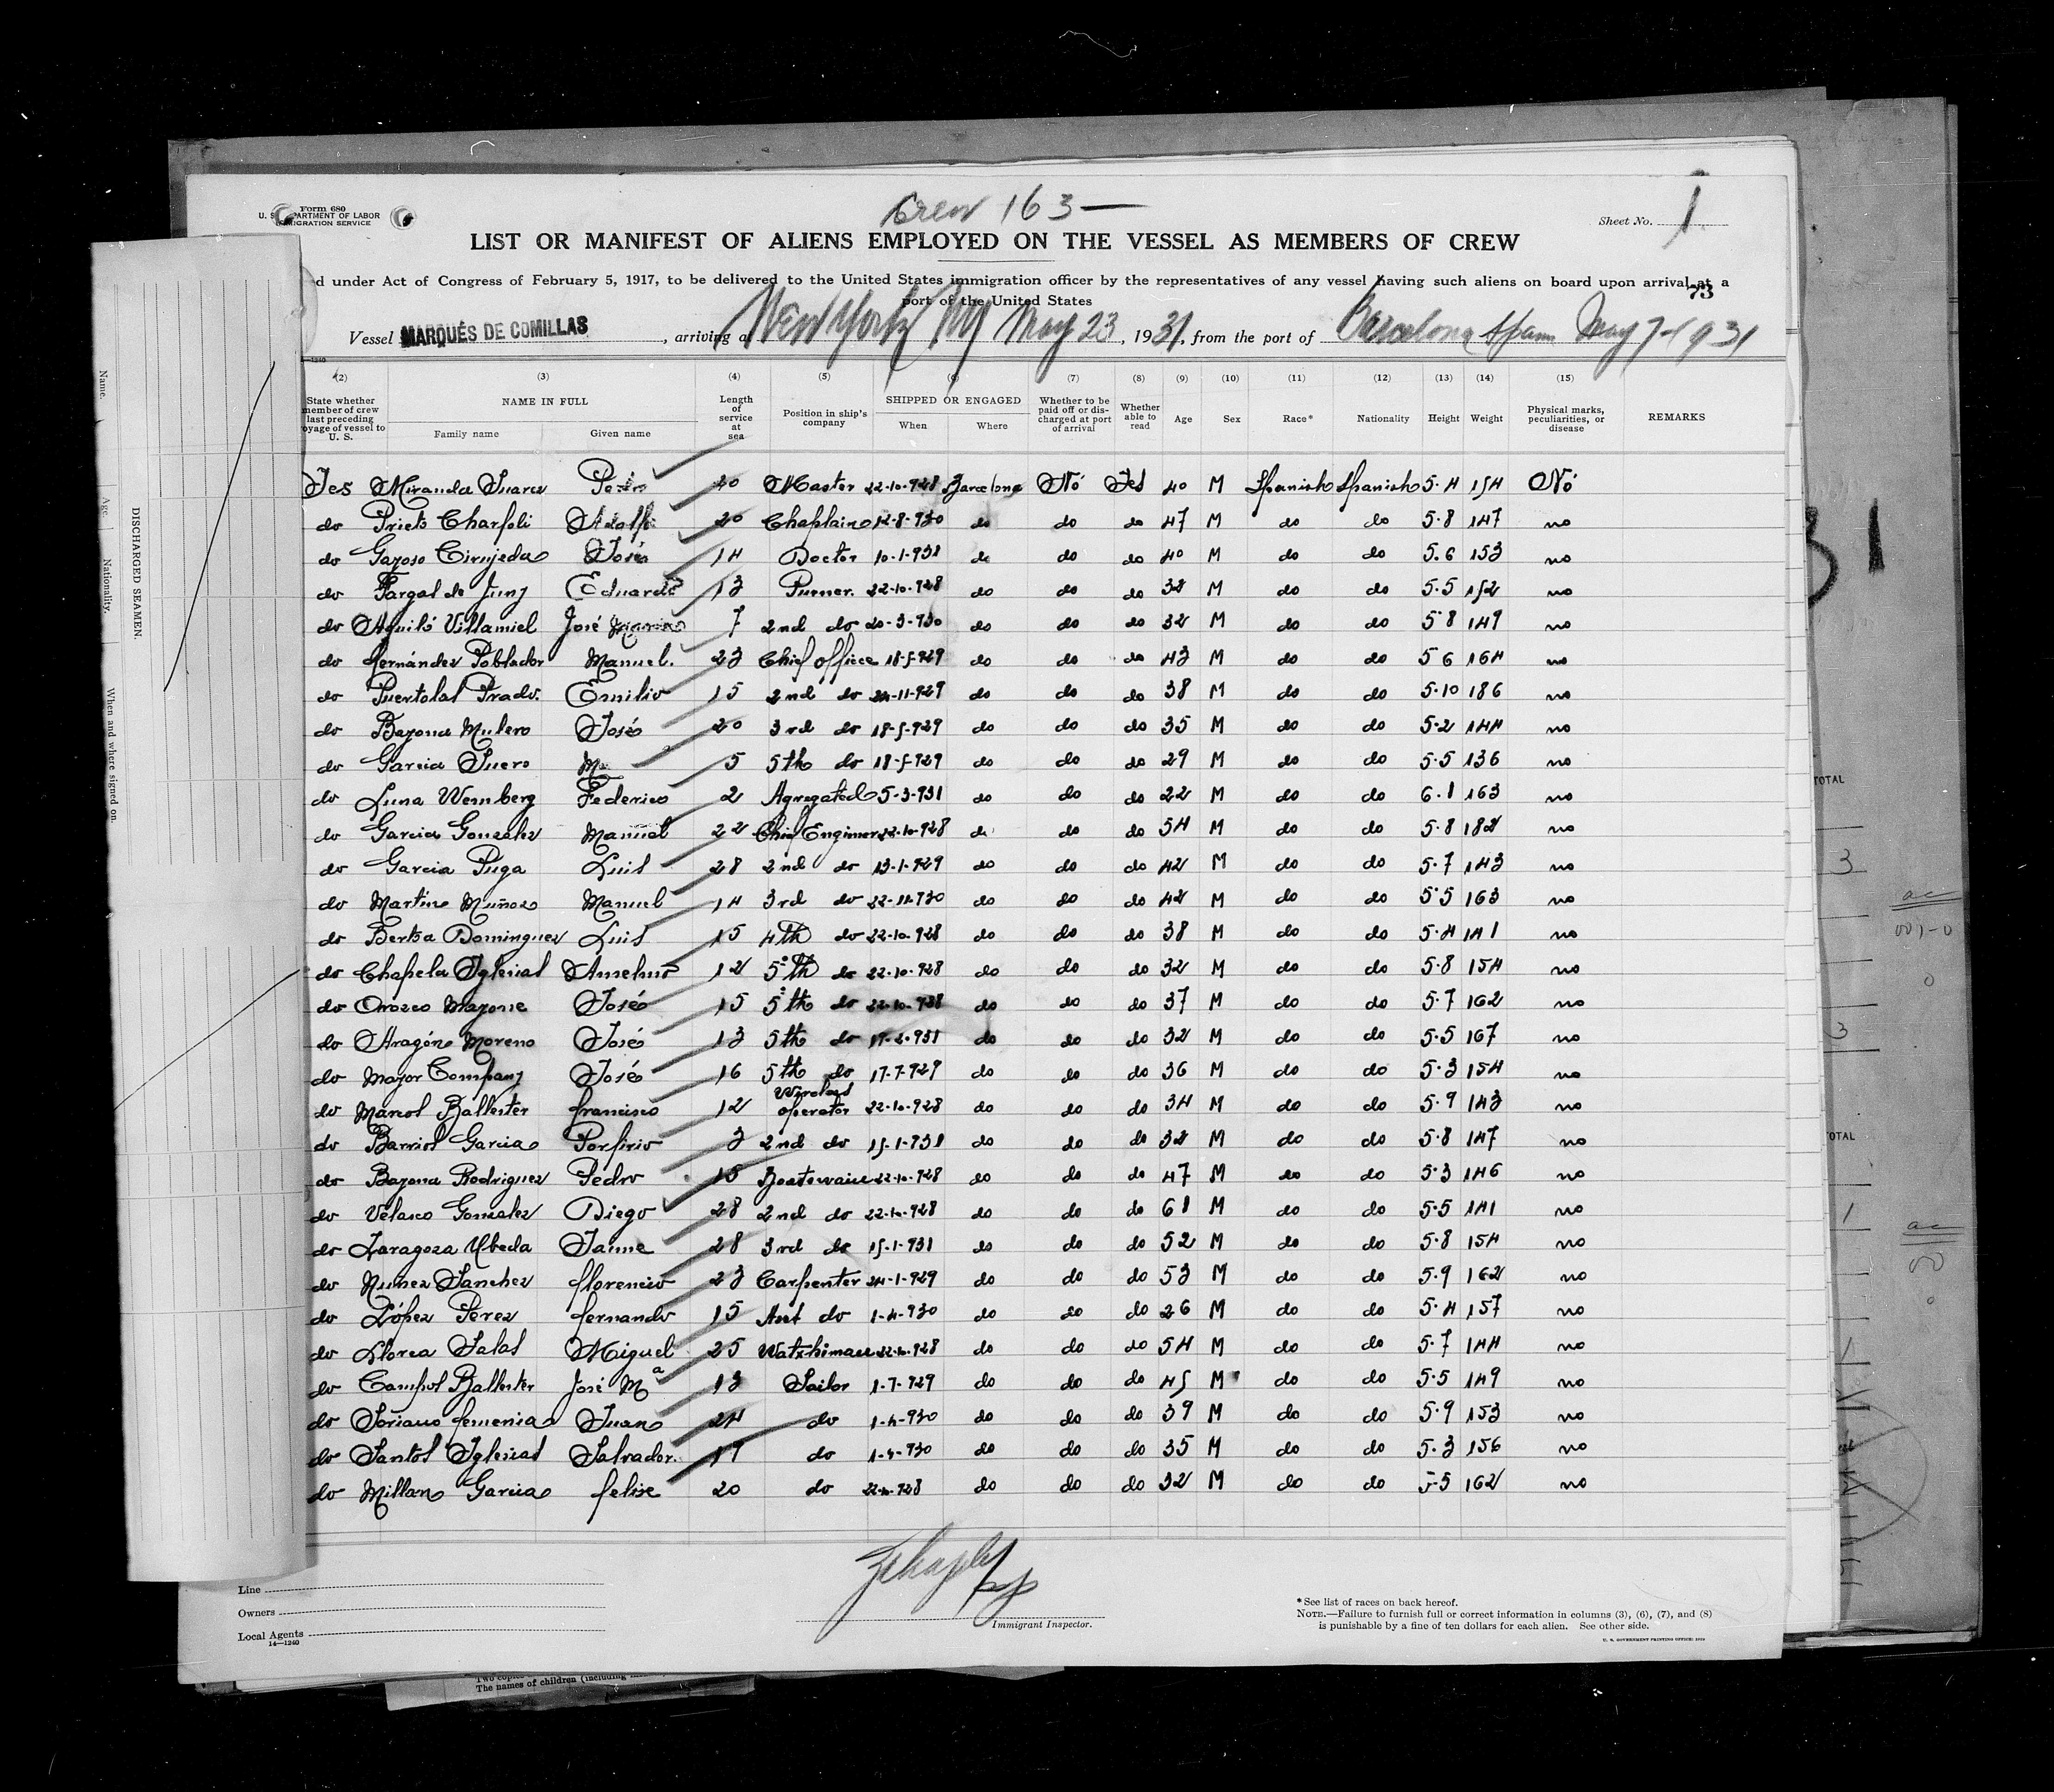 Crew 163—
Form 680
U. S. DEPARTMENT OF LABOR
IMMIGRATION SERVICE
Sheet No. 1
LIST OR MANIFEST OF ALIENS EMPLOYED ON THE VESSEL AS MEMBERS OF CREW
d under Act of Congress of February 5, 1917, to be delivered to the United States immigration officer by the representatives of any vessel having such aliens on board upon arrival at a
port of the United States
73
Vessel MARQUÉS DE COMILLAS, arriving at New York NY May 23, 1931, from the port of Barcelona Spain May 7-1931
(2) (3) (4) (5) (6) (7) (8) (9) (10) (11) (12) (13) (14) (15)
State whether member of crew last preceding voyage of vessel to U. S.
NAME IN FULL
Family name Given name
Length of service at sea
Position in ship's company
SHIPPED OR ENGAGED
When Where
Whether to be paid off or discharged at port of arrival
Whether able to read
Age Sex Race* Nationality Height Weight
Physical marks, peculiarities, or disease
REMARKS
Yes Miranda Suarez Pedro 20 Master 22-10-928 Barcelona No Yes 40 M Spanish Spanish 5.4 154 No
do Prieto Adolfo 20 Chaplain 12-8-930 do do do 47 M do do 5.8 147 no
do Gayoso Cirujeda José 14 Doctor 10-1-931 do do do 40 M do do 5.6 153 no
do Fargal de Eduardo 13 Purser. 22-10-928 do do do 32 M do do 5.5 152 no
do Aguiló Villamiel José 7 2nd do 20-3-930 do do do 32 M do do 5 8 149 no
do Fernández Poblador Manuel. 23 Chief office 18-5-929 do do do 43 M do do 5 6 164 no
do Puertolas Prado. Emilio 15 2nd do 24-11-929 do do do 38 M do do 5.10 186 no
do Bayona Mulero José 20 3rd do 18-5-929 do do do 35 M do do 5.2 144 no
do Garcia Suero Ma 5 5th do 18-5-929 do do do 29 M do do 5.5 136 no
do Luna Wernberg Federico 2 Agregated 5-3-931 do do do 22 M do do 6.1 163 no
do Garcia Gonzalez Manuel 22 Chief Enginer 22-10-928 do do do 54 M do do 5.8 182 no
do Garcia Puga Luis 28 2nd do 13-1-929 do do do 42 M do do 5.7 143 no
do Martinz Muñoz Manuel 14 3rd do 22-11-930 do do do 42 M do do 5.5 163 no
do Bertoa Dominguez Luis 15 4th do 22-10-928 do do do 38 M do do 5.4 141 no
do Chapela Iglesias Anselmo 12 5th do 22-10-928 do do do 32 M do do 5.8 154 no
do Orozco Mayone José 15 5th do 22-10-928 do do do 37 M do do 5.7 162 no
do Aragón Moreno José 13 5th do 19-2-931 do do do 32 M do do 5.5 167 no
do Mayor Company José 16 5th do 17-7-929 do do do 36 M do do 5.3 154 no
do Marcos Ballester Francisco 12 Wireless operator 22-10-928 do do do 34 M do do 5.9 143 no
do Barrios Garcia Porfirio 3 2nd do 15-1-931 do do do 32 M do do 5.8 147 no
do Bayona Rodriguez Pedro 15 Boatswain 22-10-928 do do do 47 M do do 5.3 146 no
do Velasco Gonzalez Diego 28 2nd do 22-10-928 do do do 61 M do do 5.5 141 no
do Zaragoza Ubeda Jaime 28 3rd do 15-1-931 do do do 52 M do do 5.8 154 no
do Nuñez Sanchez Florencio 23 Carpenter 24-1-929 do do do 53 M do do 5.9 162 no
do López Perez Fernando 15 Asst do 1-4-930 do do do 26 M do do 5.4 157 no
do Llorca Salas Miguel 25 Watxhiman 22-10-928 do do do 54 M do do 5.7 144 no
do Campos Ballester José Mª 13 Sailor 1-7-929 do do do 45 M do do 5.5 149 no
do Soriano Femenia Juan 24 do 1-4-930 do do do 39 M do do 5.9 153 no
do Santos Iglesias Salvador. 19 do 1-4-930 do do do 35 M do do 5.3 156 no
do Millan Garcia Felix 20 do 22-10-928 do do do 32 M do do 5-5 162 no
Line
Owners
Local Agents
14—1240
Immigrant Inspector.
* See list of races on back hereof.
NOTE.—Failure to furnish full or correct information in columns (3), (6), (7), and (8)
is punishable by a fine of ten dollars for each alien. See other side.
U. S. GOVERNMENT PRINTING OFFICE: 1929
Name.
Age.
Nationality.
When and where signed on.
DISCHARGED SEAMEN.
31
TOTAL
3
3
TOTAL
1
The names of children (including